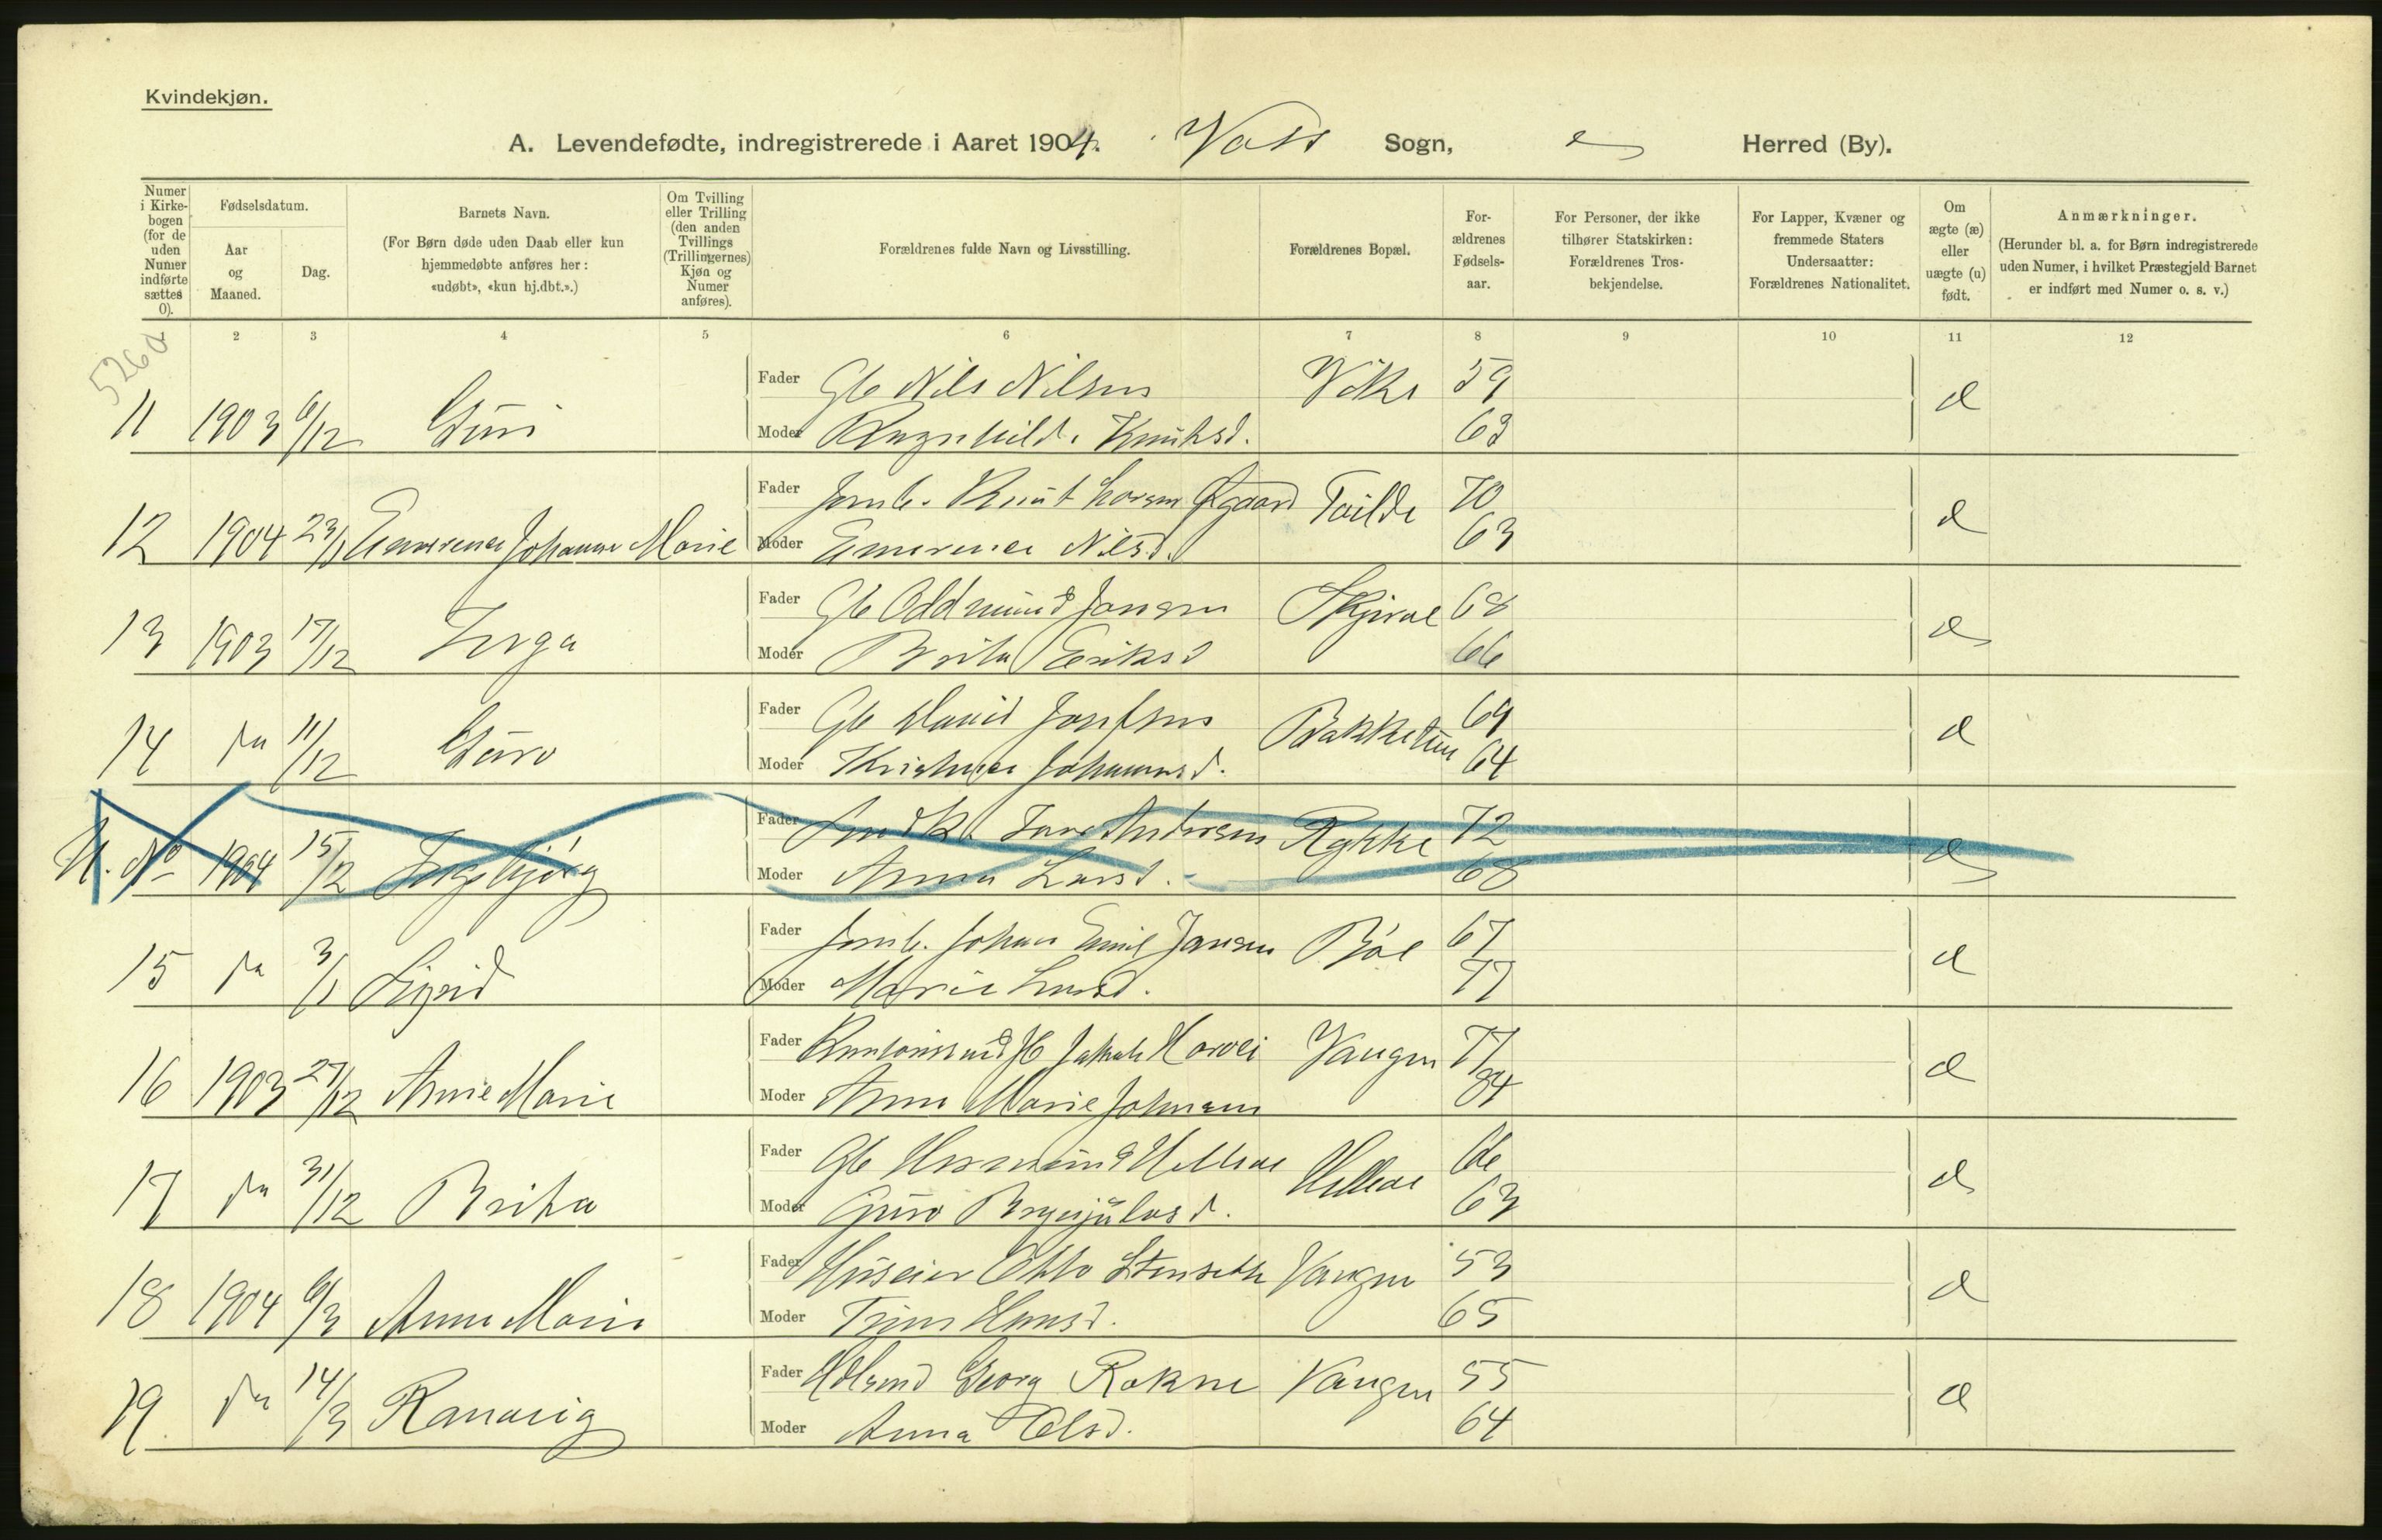 Kvindekjøn.
A. Levendefødte, indregistrerede i Aaret 1904. Voss Sogn, Herred (By).
Numer i Kirkebogen (for de uden Numer indførte sættes 0).
Fødselsdatum.
Aar og Maaned.
Dag.
Barnets Navn.
(For Børn døde uden Daab eller kun hjemmedøbte anføres her: «udøbt», «kun hj.dbt.».)
Om Tvilling eller Trilling (den anden Tvillings (Trillingernes) Kjøn og Numer anføres).
Forældrenes fulde Navn og Livsstilling.
Forældrenes Bopæl.
Forældrenes Fødselsaar.
For Personer, der ikke tilhører Statskirken: Forældrenes Trosbekjendelse.
For Lapper, Kvæner og fremmede Staters Undersaatter: Forældrenes Nationalitet.
Om ægte (æ) eller uægte (u) født.
Anmærkninger.
(Herunder bl. a. for Børn indregistrerede uden Numer, i hvilket Præstegjeld Barnet er indført med Numer o. s. v.)
2 3 4 5 6 7 8 9 10 11 12
526a
11 1903 6/12 Guri Fader Gb Nils Nilsen Vika 59 æ
Moder Ragnhild Knutsd. 63
12 1904 23/1 Emerence Johanne Marie Fader Jernb. Knut Tvilde 70 æ
Moder Emerence Nilsd. 63
13 1903 17/12 Inga Fader Gb Oddmund Jonsen 68 æ
Moder Brita Eriksd 66
14 da 11/12 Guro Fader Gb David Josefsen Bakketun 69 æ
Moder Johannesd. 64
U. No 1904 15/2 Ingebjørg Fader Andersen Rokke 72 æ
Moder Anna Larsd. 68
15 da 3/1 Sigrid Fader Jernb. Johan Emil Jansen Bøe 67 æ
Moder Marie Larsd. 77
16 1903 27/12 Anne Marie Fader Vangen 77 æ
Moder Anna Marie Johnsen 84
17 da 31/12 Brita Fader Gb Hellene Hellene 66 æ
Moder Guro Brynjulvsd. 63
18 1904 6/3 Anna Marie Fader Huseier Otto Stenseth Vangen 53 æ
Moder Trine Hansd. 65
19 da 14/3 Ranveig Fader Georg Rokne Vangen 55 æ
Moder Anna Olsd. 64